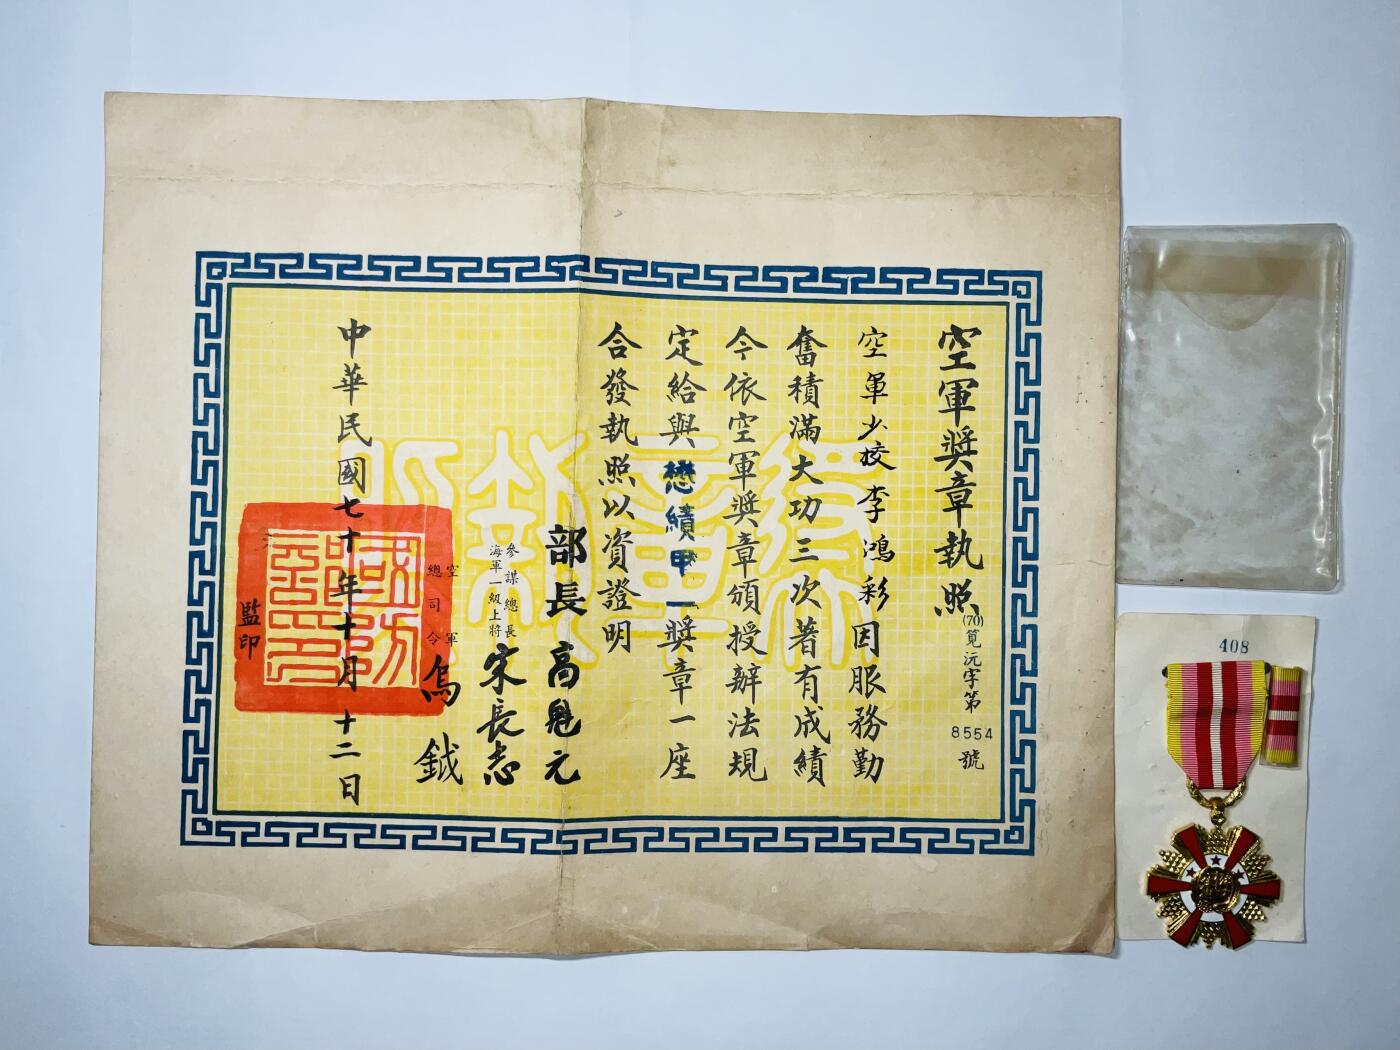 空軍獎章執照
(70)筧沅字第
8554
號
空軍少校李鴻彩因服務勤
奮積滿大功三次著有成績
今依空軍獎章頒授辦法規
定給與懋績甲一獎章一座
合發執照以資證明
部長高魁元
參謀總長
海軍一級上將
宋長志
空軍
總司令
烏鉞
中華民國七十年十月十二日
監印
國防
部印
408